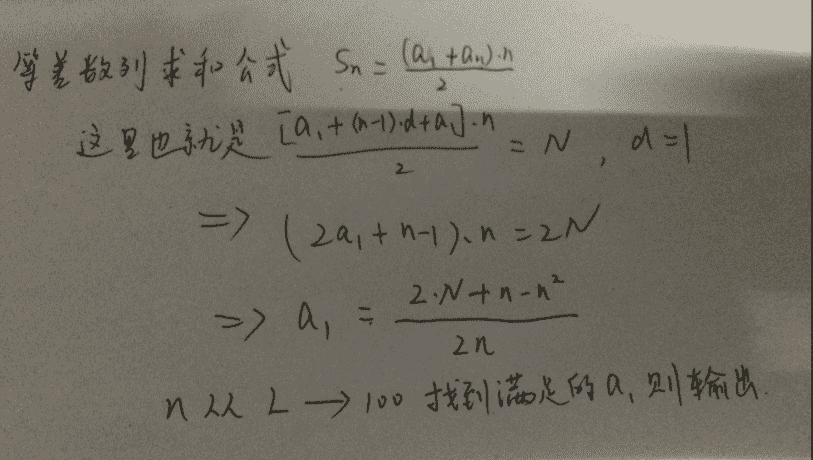 等差数列求和公式 Sn = (a₁+an)·n / 2
这里也就是 [a₁+(n-1)·d+a₁]·n / 2 = N , d=1
=> (2a₁+n-1)·n=2N
=> a₁ = 2·N+n-n² / 2n
n从 L → 100 找到满足的a₁则输出.